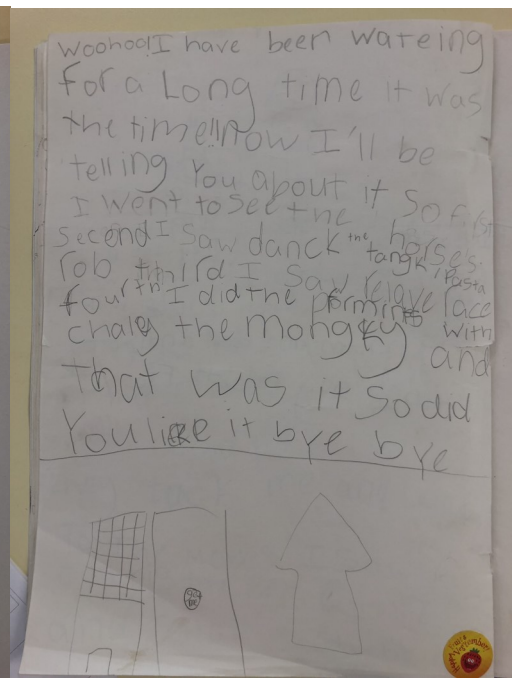 Woohoo!I have been wateing
for a Long time it was
the time!!now I'll be
telling You about it So first
I went to see the horses
Second I Saw danck the tangk/Pasta
rob third I Saw relave race
fourth I did the with
chaley the mongky and
That was it So did
You like it bye bye